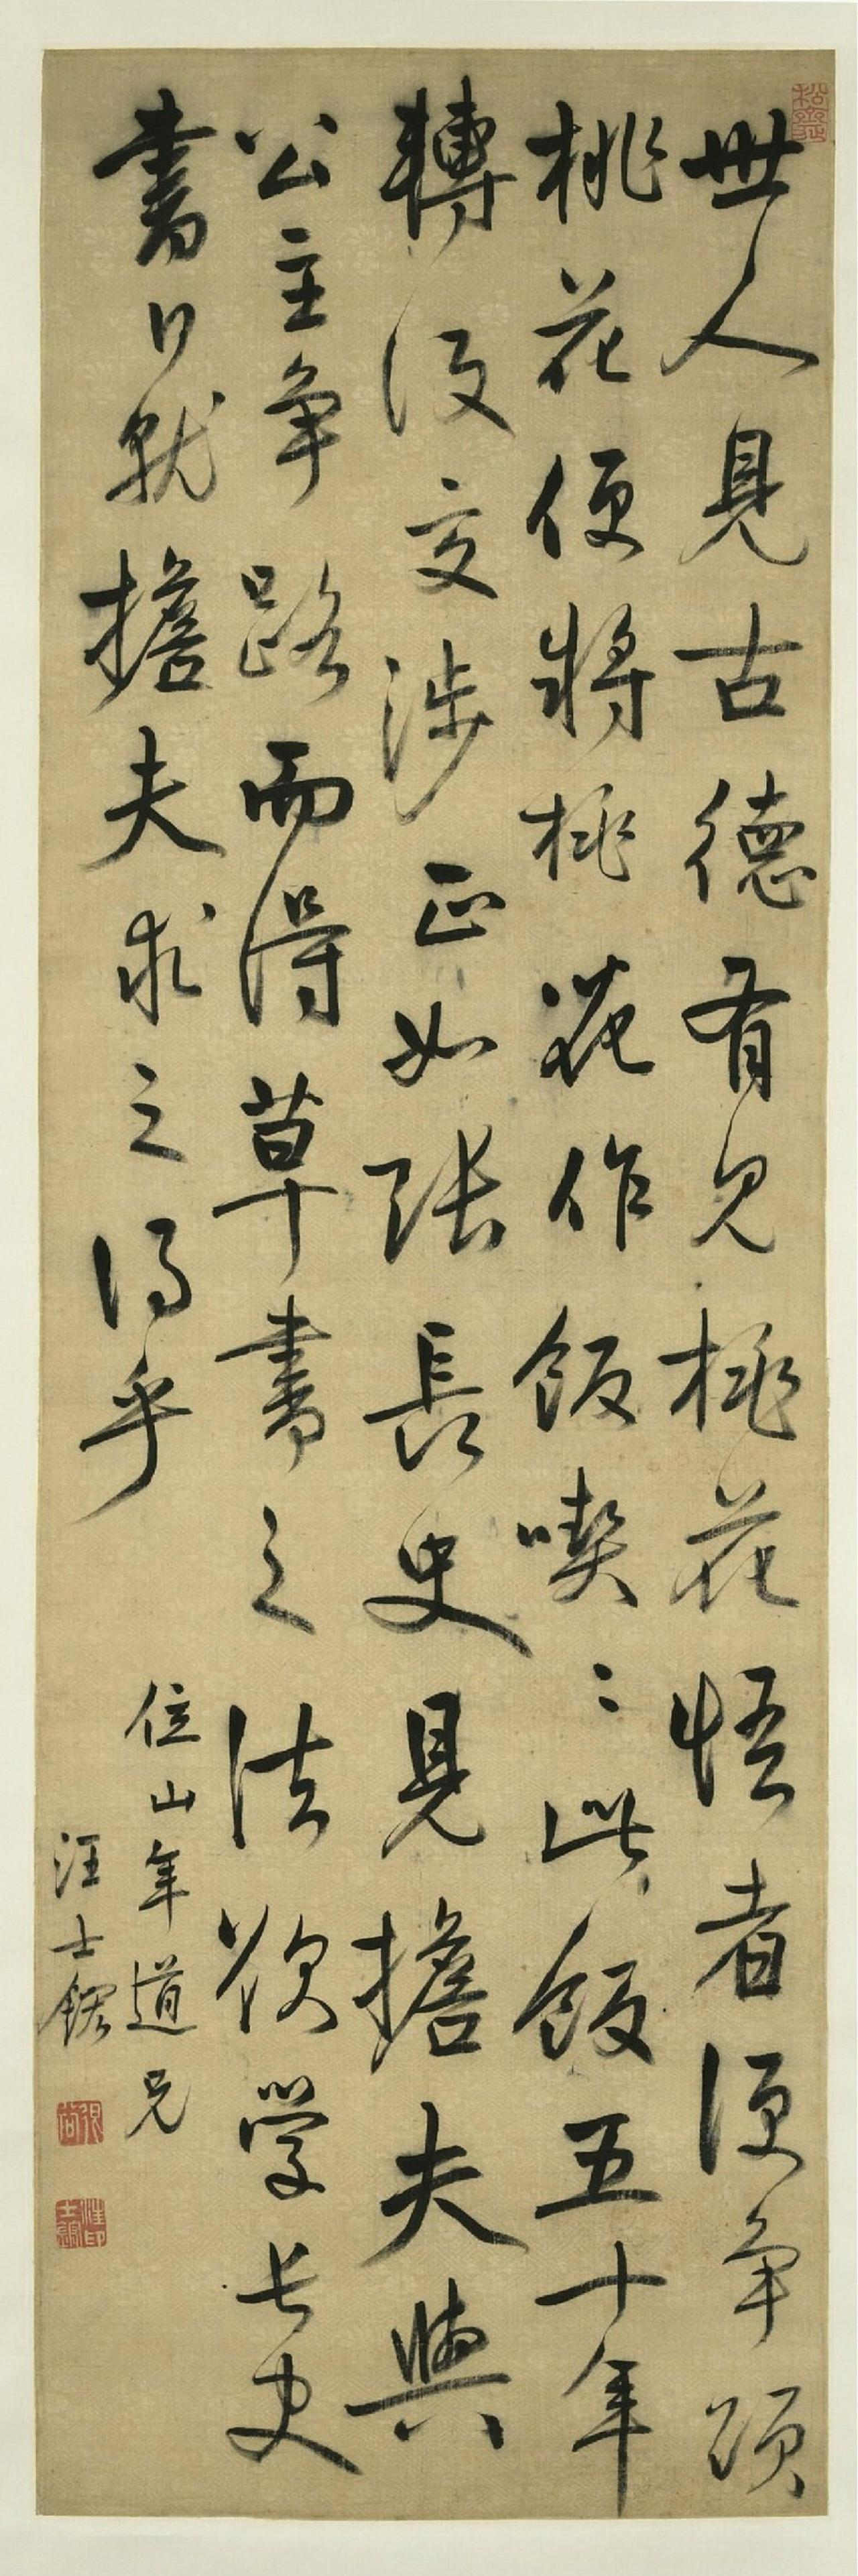 世人見古德有見桃花悟者便爭頌
桃花便將桃花作飯喫〻此飯五十年
轉沒交涉正如張長史見擔夫與
公主爭路而得草書之法欲學長史
書日就擔夫求之得乎
位山年道兄
汪士鋐
松齋